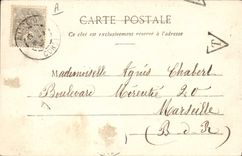 A
CARTE POSTALE
Ce côté est exclusivement réservé à l'adresse
T
Mademoiselle Agnès Chabert
Boulevard Mérentié 20
Marseille
(B-d-R)